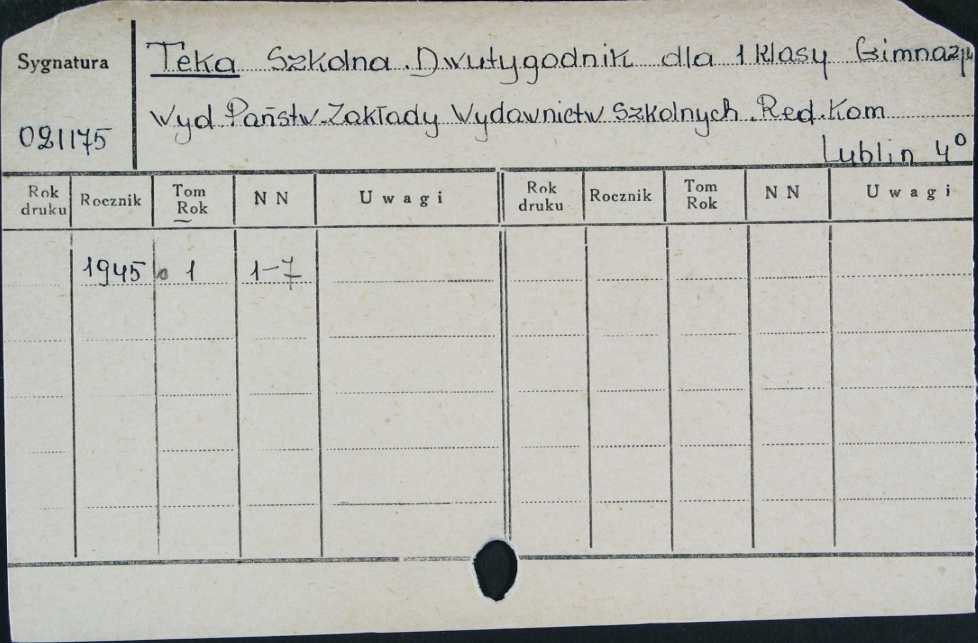 Sygnatura
Teka Szkolna. Dwutygodnik dla 1 klasy Gimnazju
021175
Wyd Państw. Zakłady Wydawnictw Szkolnych. Red. Kom
Lublin 4º
Rok druku Rocznik Tom Rok NN Uwagi Rok druku Rocznik Tom Rok NN Uwagi
1945 1 1-7